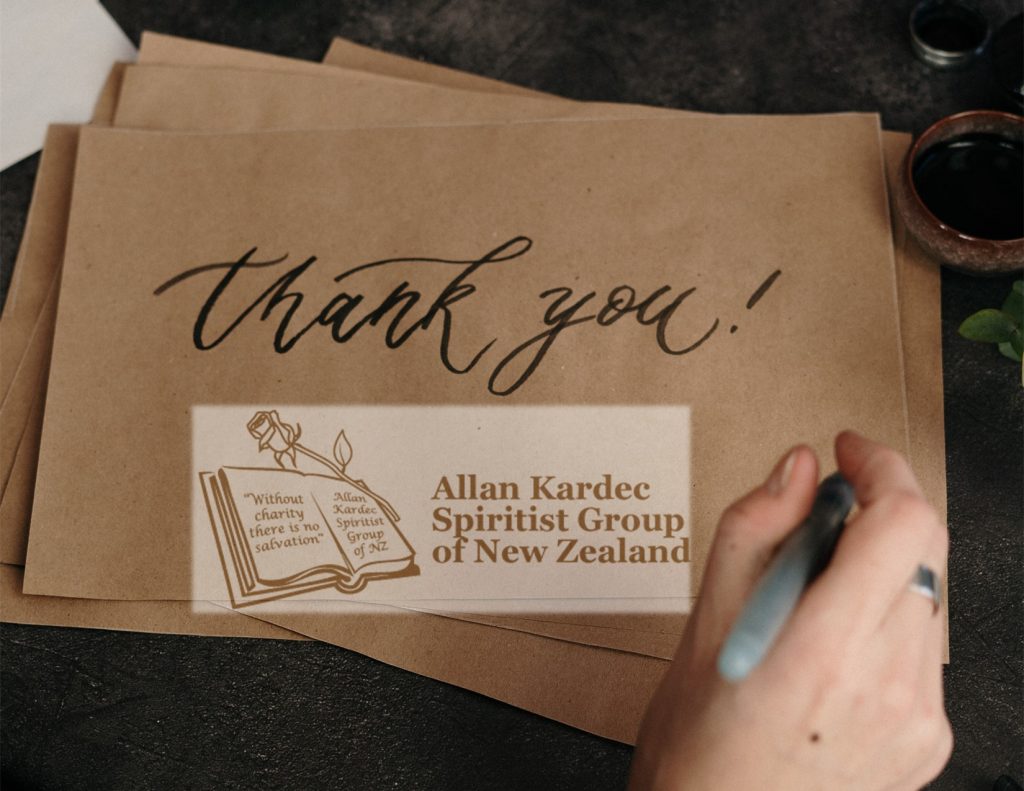 thank you!
"Without
charity
there is no
salvation"
Allan
Kardec
Spiritist
Group
of NZ
Allan Kardec
Spiritist Group
of New Zealand